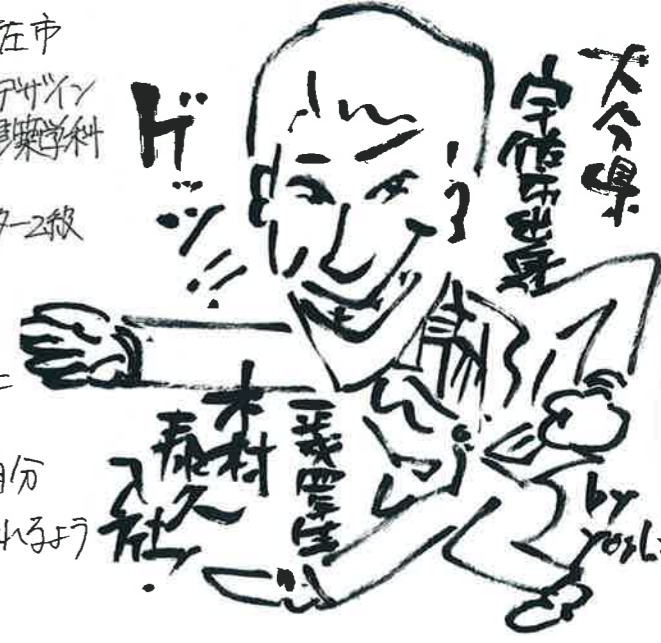 佐市
デザイン
建築学科
ター2級
自分
れるよう
ゲッツ!!
大分県
宇佐市出身
木村
泰久
入社
by